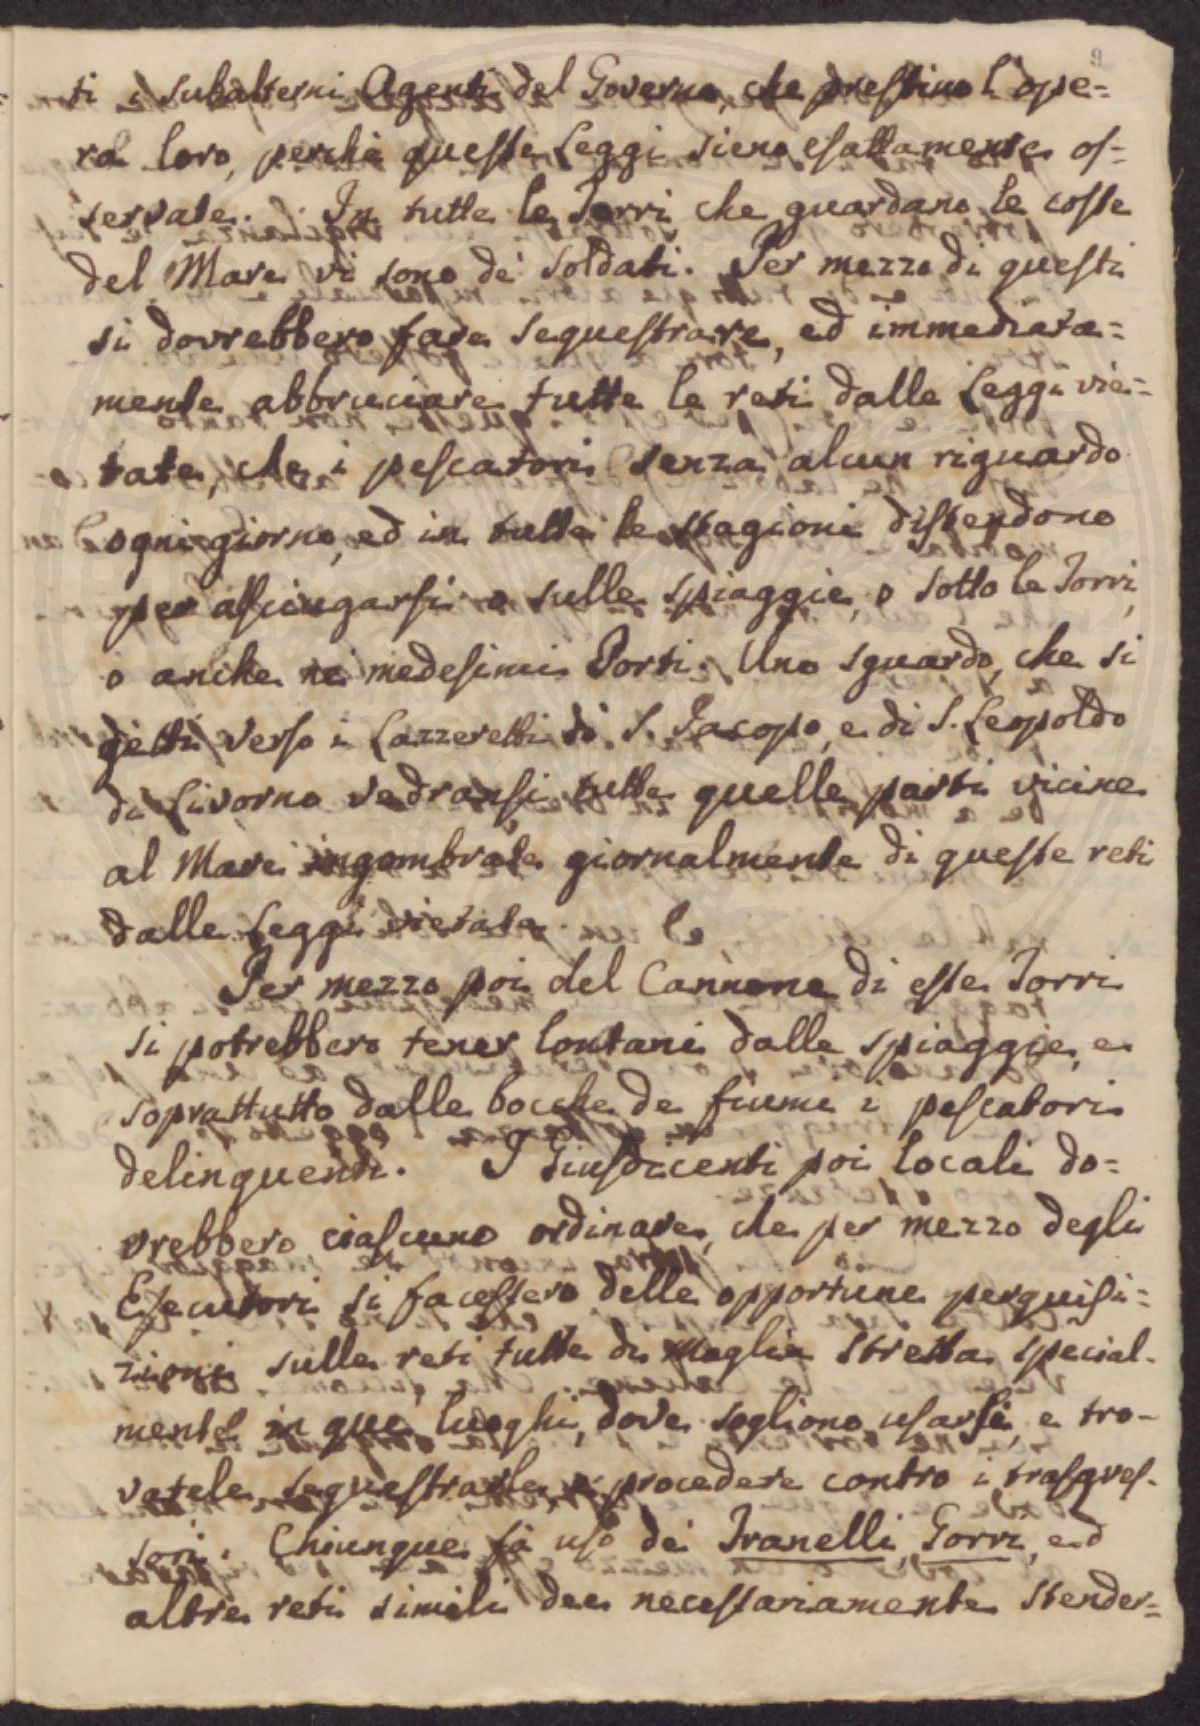 9
ti i subalterni Agenti del Governo, che prestino l'ope=
ra loro, perchè queste Leggi sieno esattamente os=
servate. In tutte le Torri che guardano le coste
del Mare vi sono de' soldati. Per mezzo di questi
si dovrebbero fare sequestrare, ed immediata=
mente abbruciare tutte le reti dalle Leggi vie=
tate, che i pescatori senza alcun riguardo
ogni giorno, ed in tutte le stagioni distendono
per asciugarsi o sulle spiaggie, o sotto le Torri,
o anche ne medesimi Porti. Uno sguardo, che si
getti verso i Lazzeretti di S. Jacopo, e di S. Leopoldo
di Livorno vedransi tutte quelle parti vicine
al Mare ingombrate giornalmente di queste reti
dalle Leggi vietate.
Per mezzo poi del Cannone di esse Torri
si potrebbero tener lontani dalle spiaggie, e
soprattutto dalle bocche de fiumi i pescatori
delinquenti. I Giusdicenti poi locali do=
vrebbero ciascuno ordinare, che per mezzo degli
Esecutori si facessero delle opportune perquisi=
zioni sulle reti tutte di maglia stretta special-
mente in que luoghi, dove sogliono usarsi, e tro-
vatele, sequestrarle, e procedere contro i trasgres-
sori. Chiunque fà uso de' Tranelli, Gorri, ed
altre reti simili dee necessariamente stender=